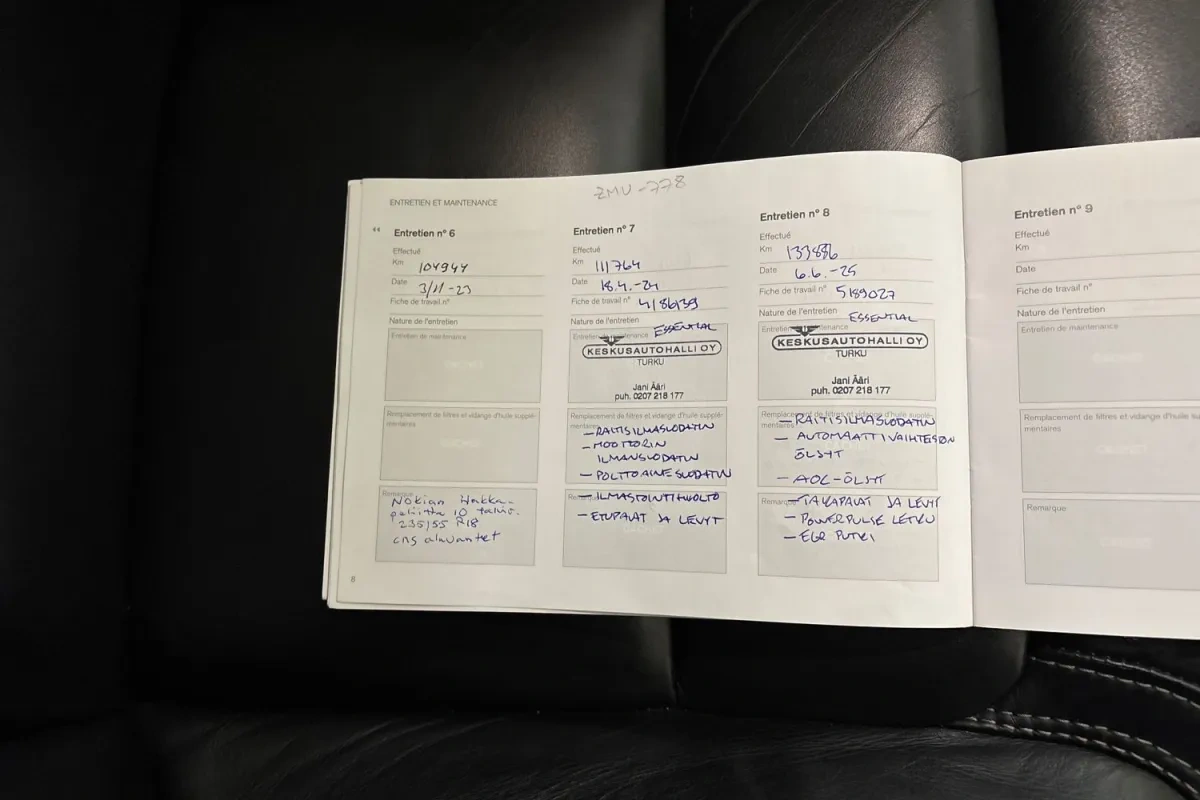 ZMU-778
ENTRETIEN ET MAINTENANCE
Entretien n° 6
Effectué
Km 104944
Date 3/11-23
Fiche de travail n°
Nature de l'entretien
Entretien de maintenance
Remplacement de filtres et vidange d'huile supplé-
mentaires
Remarque
Nokian Hakka-
peliitta 10 talvir.
235/55 R18
8
Entretien n° 7
Effectué
Km 111764
Date 18.4.-24
Fiche de travail n° 4186139
Nature de l'entretien
ESSENTIAL
Entretien de maintenance
KESKUSAUTOHALLI OY
TURKU
Jani Ääri
puh. 0207 218 177
Remplacement de filtres et vidange d'huile supplé-
mentaires
- RAITISILMASUODATIN
- MOOTTORIN
ILMANSUODATIN
- POLTTOAINESUODATIN
- ILMASTOINTIHUOLTO
- ETUPALAT JA LEVYT
Entretien n° 8
Effectué
Km 133886
Date 6.6.-25
Fiche de travail n° 5189027
Nature de l'entretien
ESSENTIAL
Entretien de maintenance
KESKUSAUTOHALLI OY
TURKU
Jani Ääri
puh. 0207 218 177
Remplacement de filtres et vidange d'huile supplé-
mentaires
- RAITISILMASUODATIN
- AUTOMAATTIVAIHTEISON
ÖLJYT
- AOC-ÖLJYT
Remarque
- TAKAPALAT JA LEVYT
- POWERPULSE LETKU
- EGR PUTKI
Entretien n° 9
Effectué
Km
Date
Fiche de travail n°
Nature de l'entretien
Entretien de maintenance
Remplacement de filtres et vidange d'huile supplé-
mentaires
Remarque